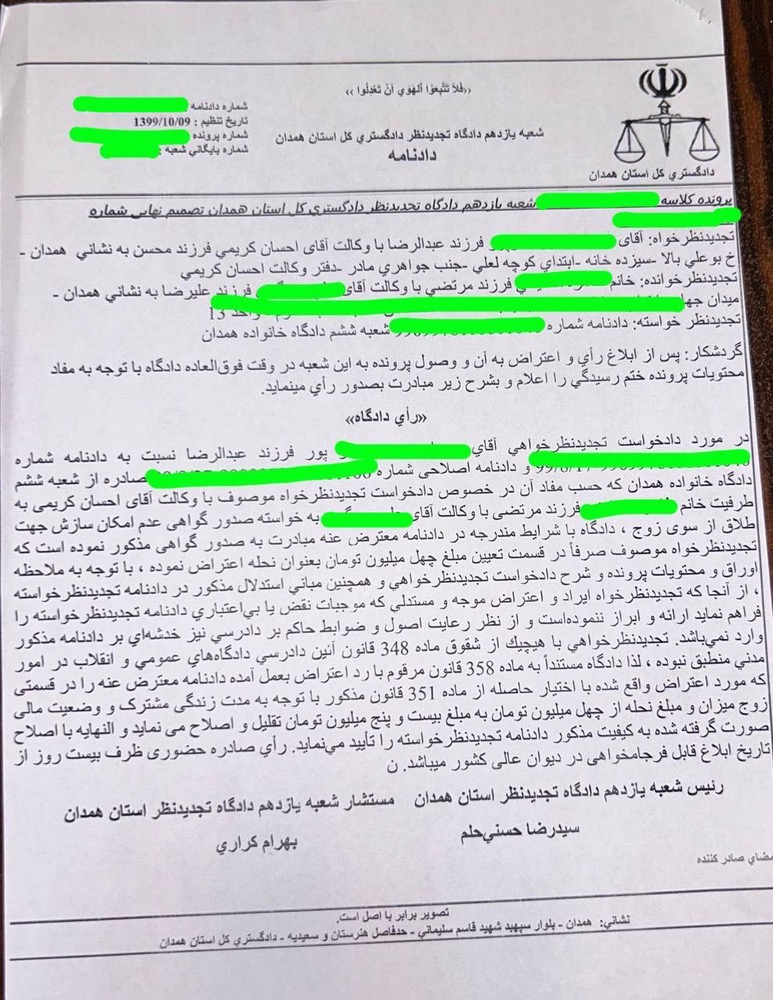 ‹‹فَلاَ تَتَّبِعُوا اَلْهَوَىٰ أَنْ تَعْدِلُوا ››
شماره دادنامه
تاریخ تنظیم : 1399/10/09
شماره پرونده
شماره بایگانی شعبه :
شعبه یازدهم دادگاه تجدیدنظر دادگستري کل استان همدان
دادنامه
دادگستري کل استان همدان
پرونده کلاسه شعبه یازدهم دادگاه تجدیدنظر دادگستري کل استان همدان تصمیم نهایی شماره
تجدیدنظرخواه: آقای فرزند عبدالرضا با وکالت آقای احسان کریمي فرزند محسن به نشاني همدان -
خ بوعلي بالا -سیزده خانه -ابتداي کوچه لعلي -جنب جواهري مادر -دفتر وکالت احسان کریمي
تجدیدنظرخوانده: خانم فرزند مرتضي با وکالت آقای فرزند علیرضا به نشاني همدان -
میدان واحد 13
تجدیدنظر خواسته: دادنامه شماره شعبه ششم دادگاه خانواده همدان
گردشکار: پس از ابلاغ رأي و اعتراض به آن و وصول پرونده به این شعبه در وقت فوق‌العاده دادگاه با توجه به مفاد
محتویات پرونده ختم رسیدگي را اعلام و بشرح زیر مبادرت بصدور رأي مینماید.
«رأي دادگاه»
در مورد دادخواست تجدیدنظرخواهي آقاي پور فرزند عبدالرضا نسبت به دادنامه شماره
و دادنامه اصلاحی شماره صادره از شعبه ششم
دادگاه خانواده همدان که حسب مفاد آن در خصوص دادخواست تجدیدنظرخواه موصوف با وکالت آقای احسان کریمي به
طرفیت خانم فرزند مرتضي با وکالت آقای به خواسته صدور گواهی عدم امکان سازش جهت
طلاق از سوی زوج ، دادگاه با شرایط مندرجه در دادنامه معترض عنه مبادرت به صدور گواهی مذکور نموده است که
تجدیدنظرخواه موصوف صرفاً در قسمت تعیین مبلغ چهل میلیون تومان بعنوان نحله اعتراض نموده ، با توجه به ملاحظه
اوراق و محتویات پرونده و شرح دادخواست تجدیدنظرخواهي و همچنین مباني استدلال مذکور در دادنامه تجدیدنظرخواسته
، از آنجا که تجدیدنظرخواه ایراد و اعتراض موجه و مستدلي که موجبات نقض یا بي‌اعتباري دادنامه تجدیدنظرخواسته را
فراهم نماید ارائه و ابراز ننموده‌است و از نظر رعایت اصول و ضوابط حاکم بر دادرسي نیز خدشه‌اي بر دادنامه مذکور
وارد نمي‌باشد. تجدیدنظرخواهي با هیچیك از شقوق ماده 348 قانون آئین دادرسي دادگاه‌هاي عمومي و انقلاب در امور
مدني منطبق نبوده ، لذا دادگاه مستنداً به ماده 358 قانون مرقوم با رد اعتراض بعمل آمده دادنامه معترض عنه را در قسمتی
که مورد اعتراض واقع شده با اختیار حاصله از ماده 351 قانون مذکور با توجه به مدت زندگی مشترک و وضعیت مالی
زوج میزان و مبلغ نحله از چهل میلیون تومان به مبلغ بیست و پنج میلیون تومان تقلیل و اصلاح می نماید و النهایه با اصلاح
صورت گرفته شده به کیفیت مذکور دادنامه تجدیدنظرخواسته را تأیید مي‌نماید. رأي صادره حضوری ظرف بیست روز از
تاریخ ابلاغ قابل فرجامخواهی در دیوان عالی کشور میباشد. ن
رئیس شعبه یازدهم دادگاه تجدیدنظر استان همدان مستشار شعبه یازدهم دادگاه تجدیدنظر استان همدان
سیدرضا حسني‌حلم بهرام کراري
مضاي صادر کننده
تصویر برابر با اصل است.
نشاني: همدان - بلوار سپهبد شهید قاسم سلیماني - حدفاصل هنرستان و سعیدیه - دادگستري کل استان همدان